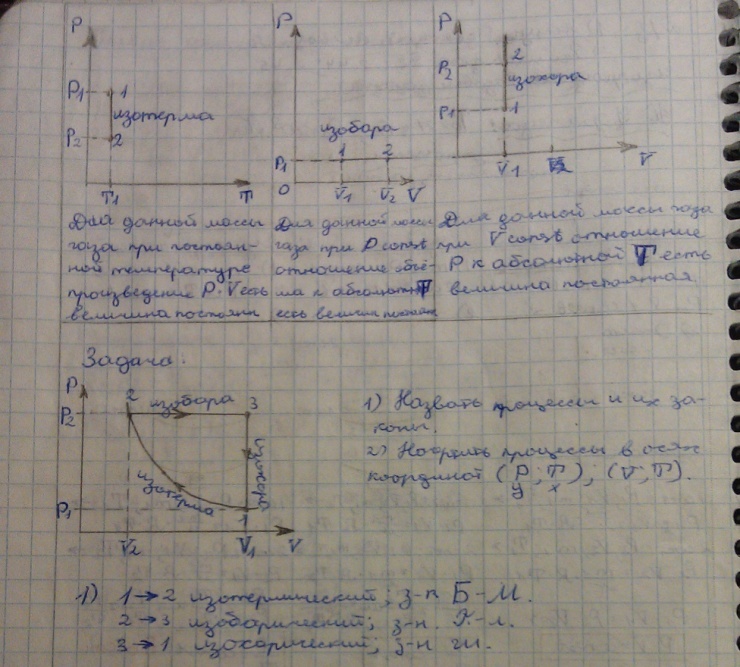 P
P1
1
изотерма
P2
2
T1
T
P
изобара
1
2
P1
O
V1
V2
V
P
2
P2
изохора
P1
1
V1
V
Для данной массы
газа при постоян-
ной температуре
произведение P·V есть
величина постоянн
Для данной массы
газа при P const
отношение объё-
ма к абсолютн T
есть велич
Для данной массы газа
при V const отношение
P к абсолютной T есть
величина постоянная
Задача:
P
2
изобара
3
P2
изохора
изотерма
P1
1
V2
V1
V
1) Назвать процессы и их за-
коны.
2) процессы в осях
координат (P; T); (V; T).
y x
1) 1→2 изотермический; з-н Б-М.
2→3 изобарический; з-н.
3→1 изохорический; з-н